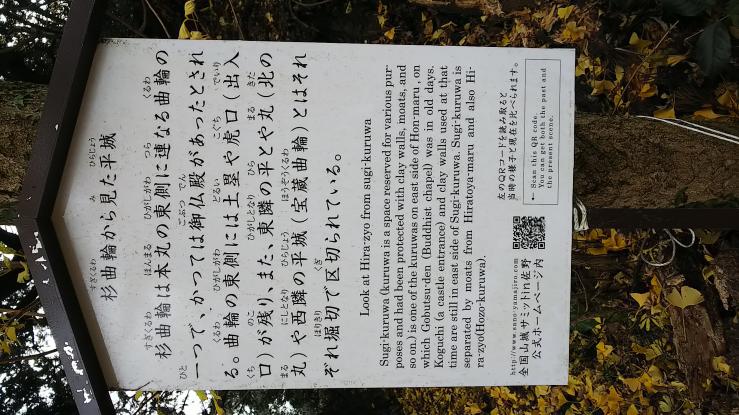 杉曲輪から見た平城
杉曲輪は本丸の東側に連なる曲輪の
一つで、かつては御仏殿があったとされ
る。曲輪の東側には土塁や虎口（出入
口）が残り、また、東隣の平とや丸（北の
丸）や西隣の平城（宝蔵曲輪）とはそれ
ぞれ堀切で区切られている。
Look at Hira-zyo from sugi-kuruwa
Sugi-kuruwa (kuruwa is a space reserved for various pur-
poses and had been protected with clay walls, moats, and
so on.) is one of the kuruwas on east side of Hon-maru , on
which Gobutsu-den (Buddhist chapel) was in old days.
Koguchi (a castle entrance) and clay walls used at that
time are still in east side of Sugi-kuruwa. Sugi-kuruwa is
separated by moats from Hiratoya-maru and also Hi-
ra-zyo(Hozo-kuruwa).
http://www.sano-yamajiro.com
全国山城サミットin佐野
公式ホームページ内
左のQRコードを読み取ると
当時の様子と現在を比べられます。
← Scan this QR code.
You can get both the past and
the present scene.